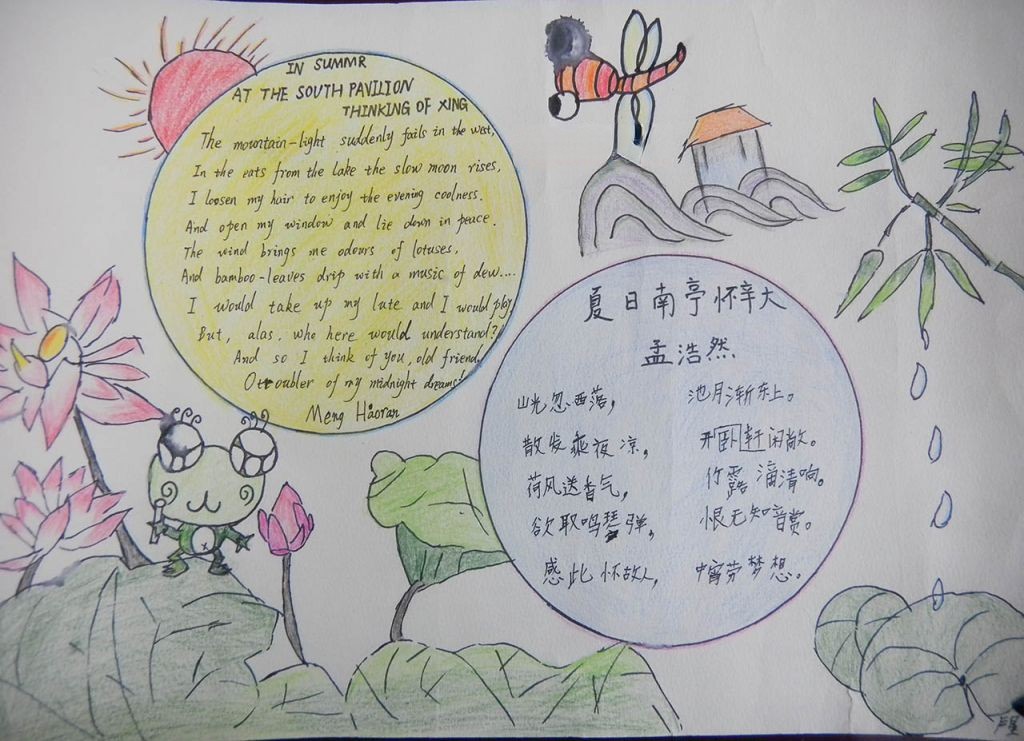 IN SUMMR
AT THE SOUTH PAVILION
THINKING OF XING
The mountain-light suddenly fails in the west,
In the eats from the lake the slow moon rises,
I loosen my hair to enjoy the evening coolness.
And open my window and lie down in peace.
The wind brings me odours of lotuses,
And bamboo-leaves drip with a music of dew....
I would take up my lute and I would play,
But, alas, who here would understand?
And so I think of you, old friend,
O troubler of my midnight dreams!
Meng Haoran
夏日南亭怀辛大
孟浩然
山光忽西落，池月渐东上。
散发乘夜凉，开卧轩闲敞。
荷风送香气，竹露滴清响。
欲取鸣琴弹，恨无知音赏。
感此怀故人，中宵劳梦想。